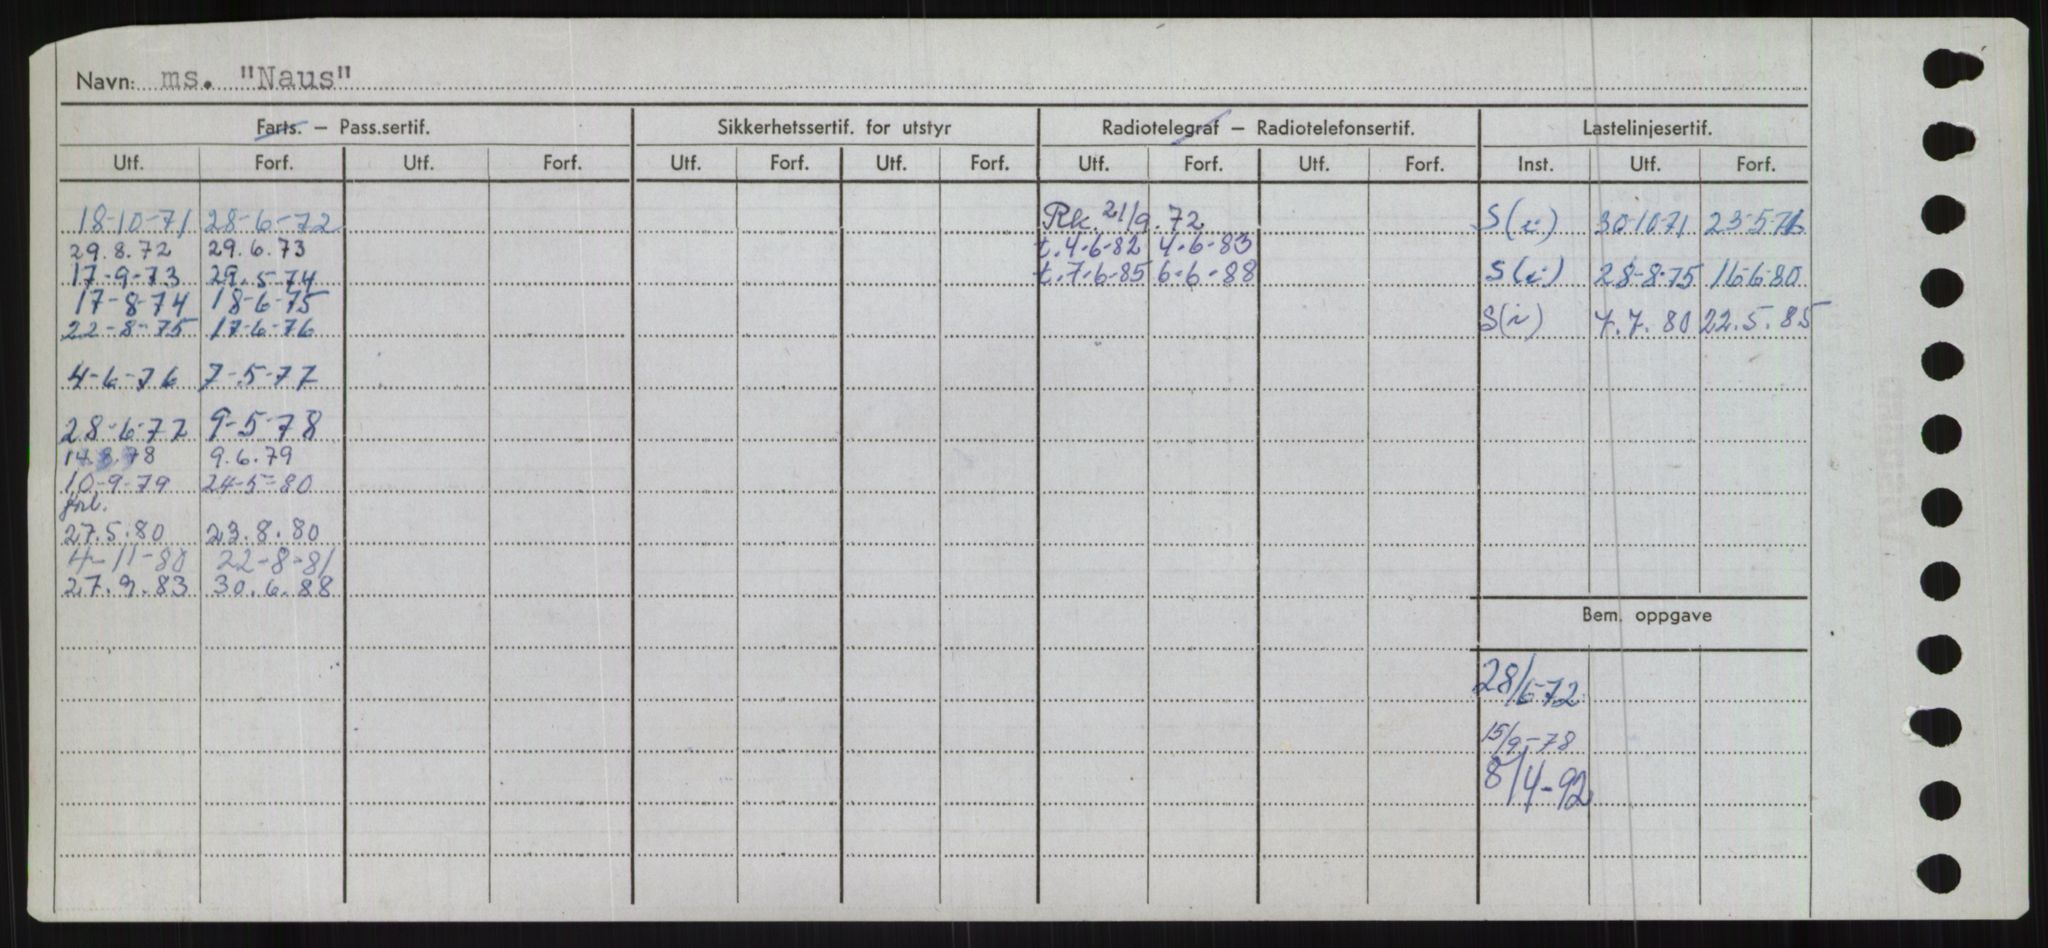 Navn: ms. "Naus"
Farts. – Pass.sertif. Sikkerhetssertif. for utstyr Radiotelegraf – Radiotelefonsertif. Lastelinjesertif.
Utf. Forf. Utf. Forf. Utf. Forf. Utf. Forf. Utf. Forf. Utf. Forf. Inst. Utf. Forf.
18-10-71 28-6-72 Rk. 21/9.72 S(i) 30-10-71 23-5-76
29.8.72 29.6.73 t.4-6-82 4-6-83
17-9-73 29.5-74 t.7-6-85 6-6-88 S(i) 28-8-75 16-6-80
17-8-74 18-6-75
22-8-75 17-6-76 S(i) 7.7.80 22.5.85
4-6-76 7-5-77
28-6-77 9-5-78
14.8.78 9.6.79
10-9-79 24-5-80
forl.
27.5.80 23.8.80
4-11-80 22-8-81
27.9.83 30.6.88
Bem. oppgave
28/6-72
15/9-78
8/4-92